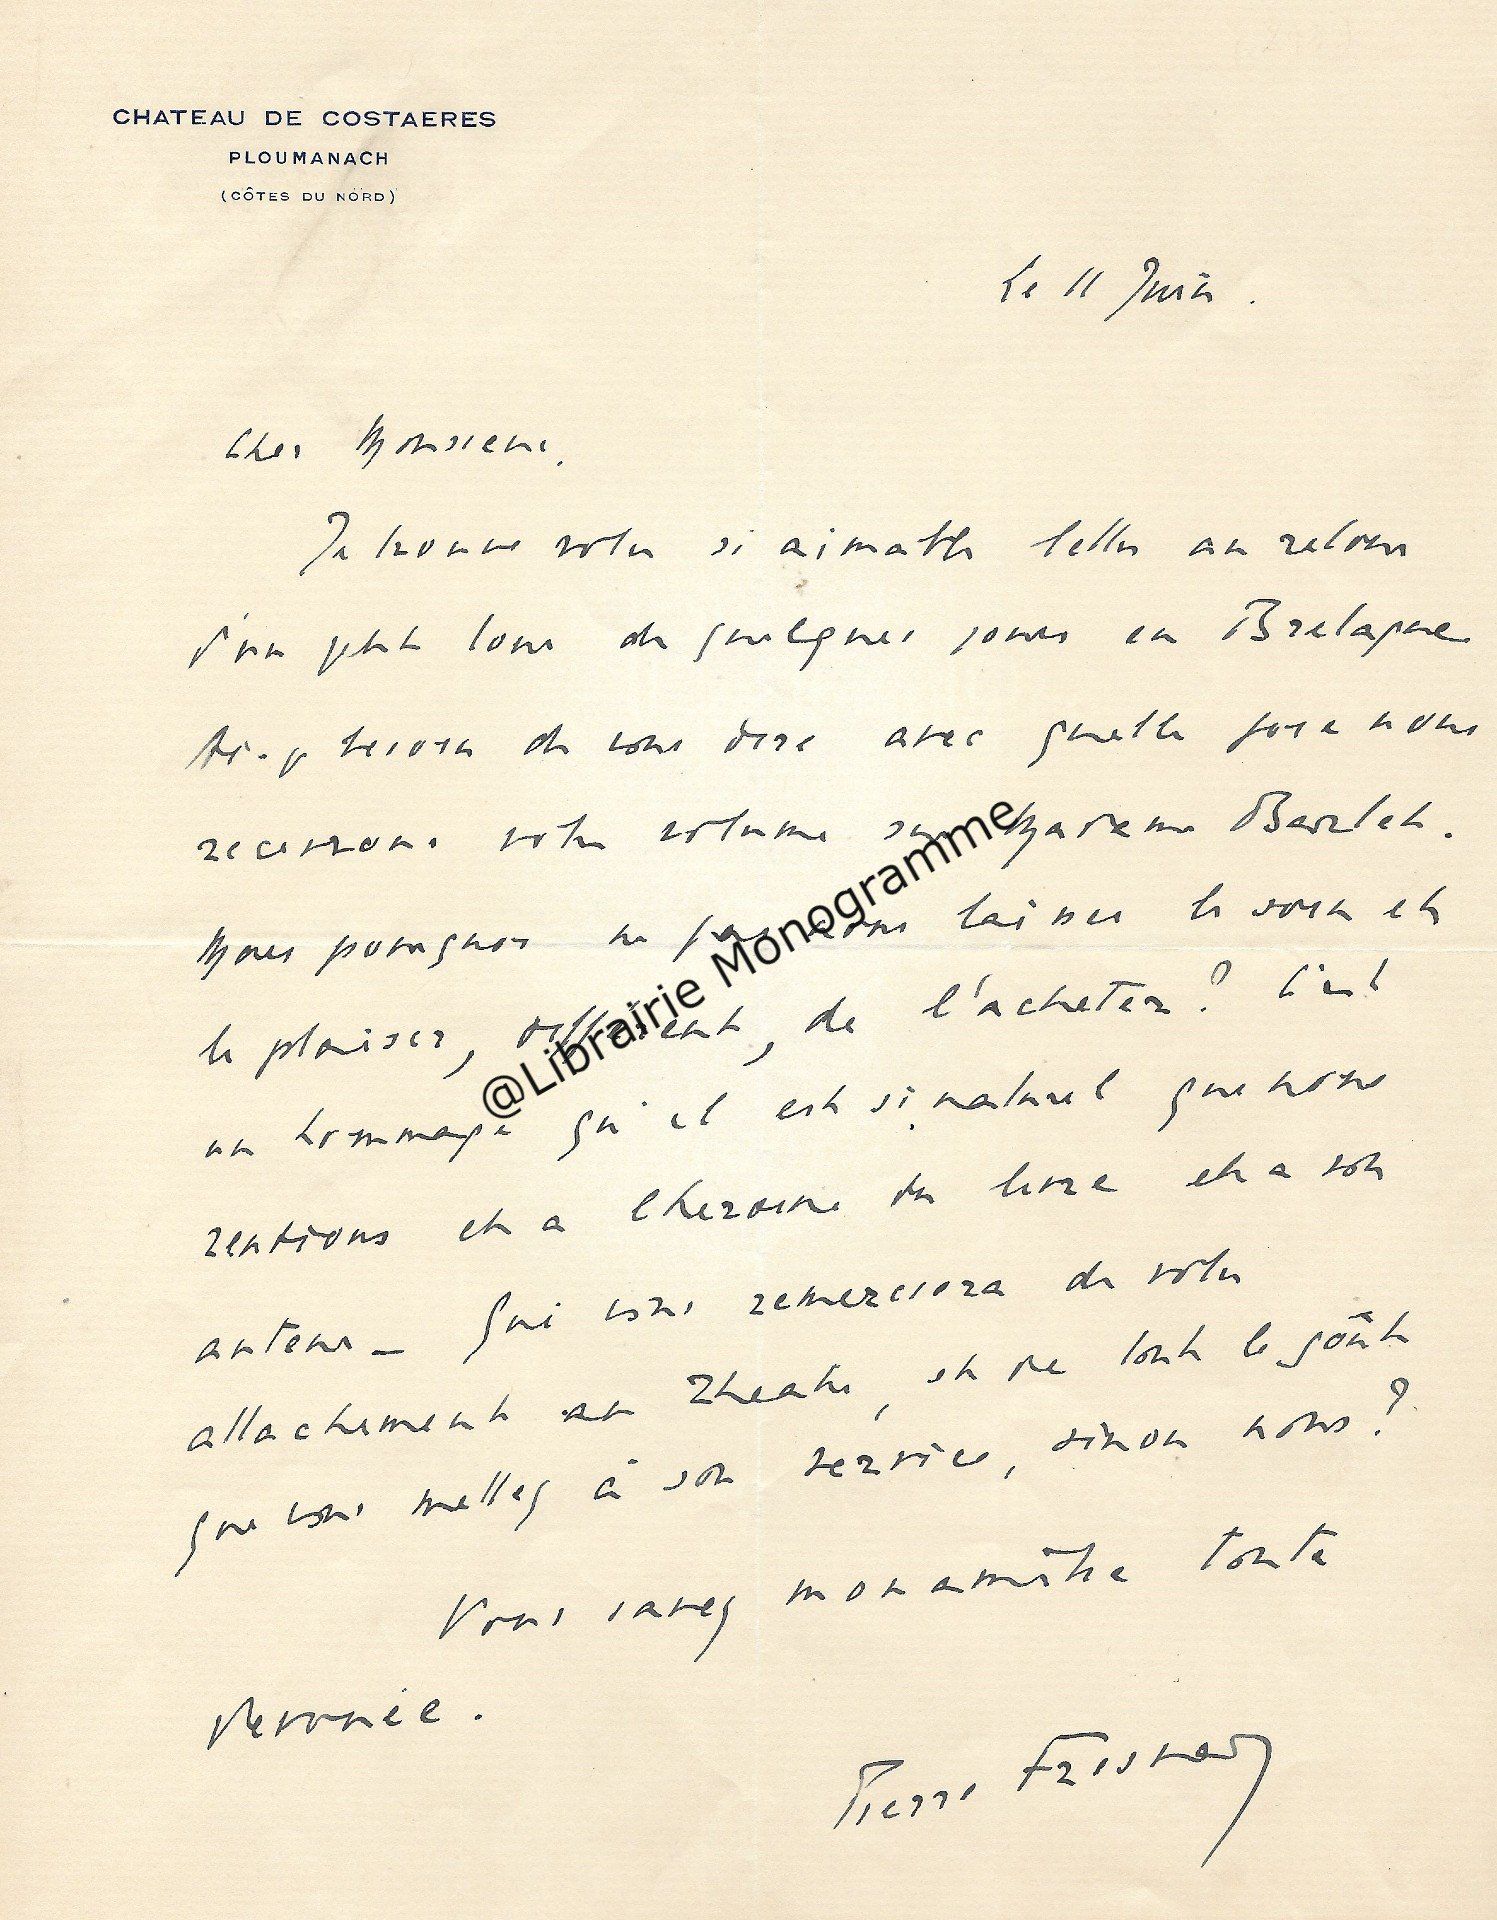 CHATEAU DE COSTAERES
PLOUMANACH
(CÔTES DU NORD)
Le 11 Juin.
Cher Monsieur,
Je trouve votre si aimable lettre au retour
d'un petit tour de quelques jours en Bretagne
Ai-je besoin de vous dire avec quelle joie nous
recevrons votre volume sur Madame Bartet.
Mais pourquoi ne pas nous laisser le soin et
le plaisir, différent, de l'acheter? C'est
un hommage qu'il est si naturel que nous
rentions et a l'heroine du livre et a son
auteur _ Qui vous remerciera de votre
attachement au Theatre, et de tout le goût
que vous mettez à son service, sinon nous?
Vous savez mon amitié toute
devouée.
Pierre Fresnay
@Librairie Monogramme